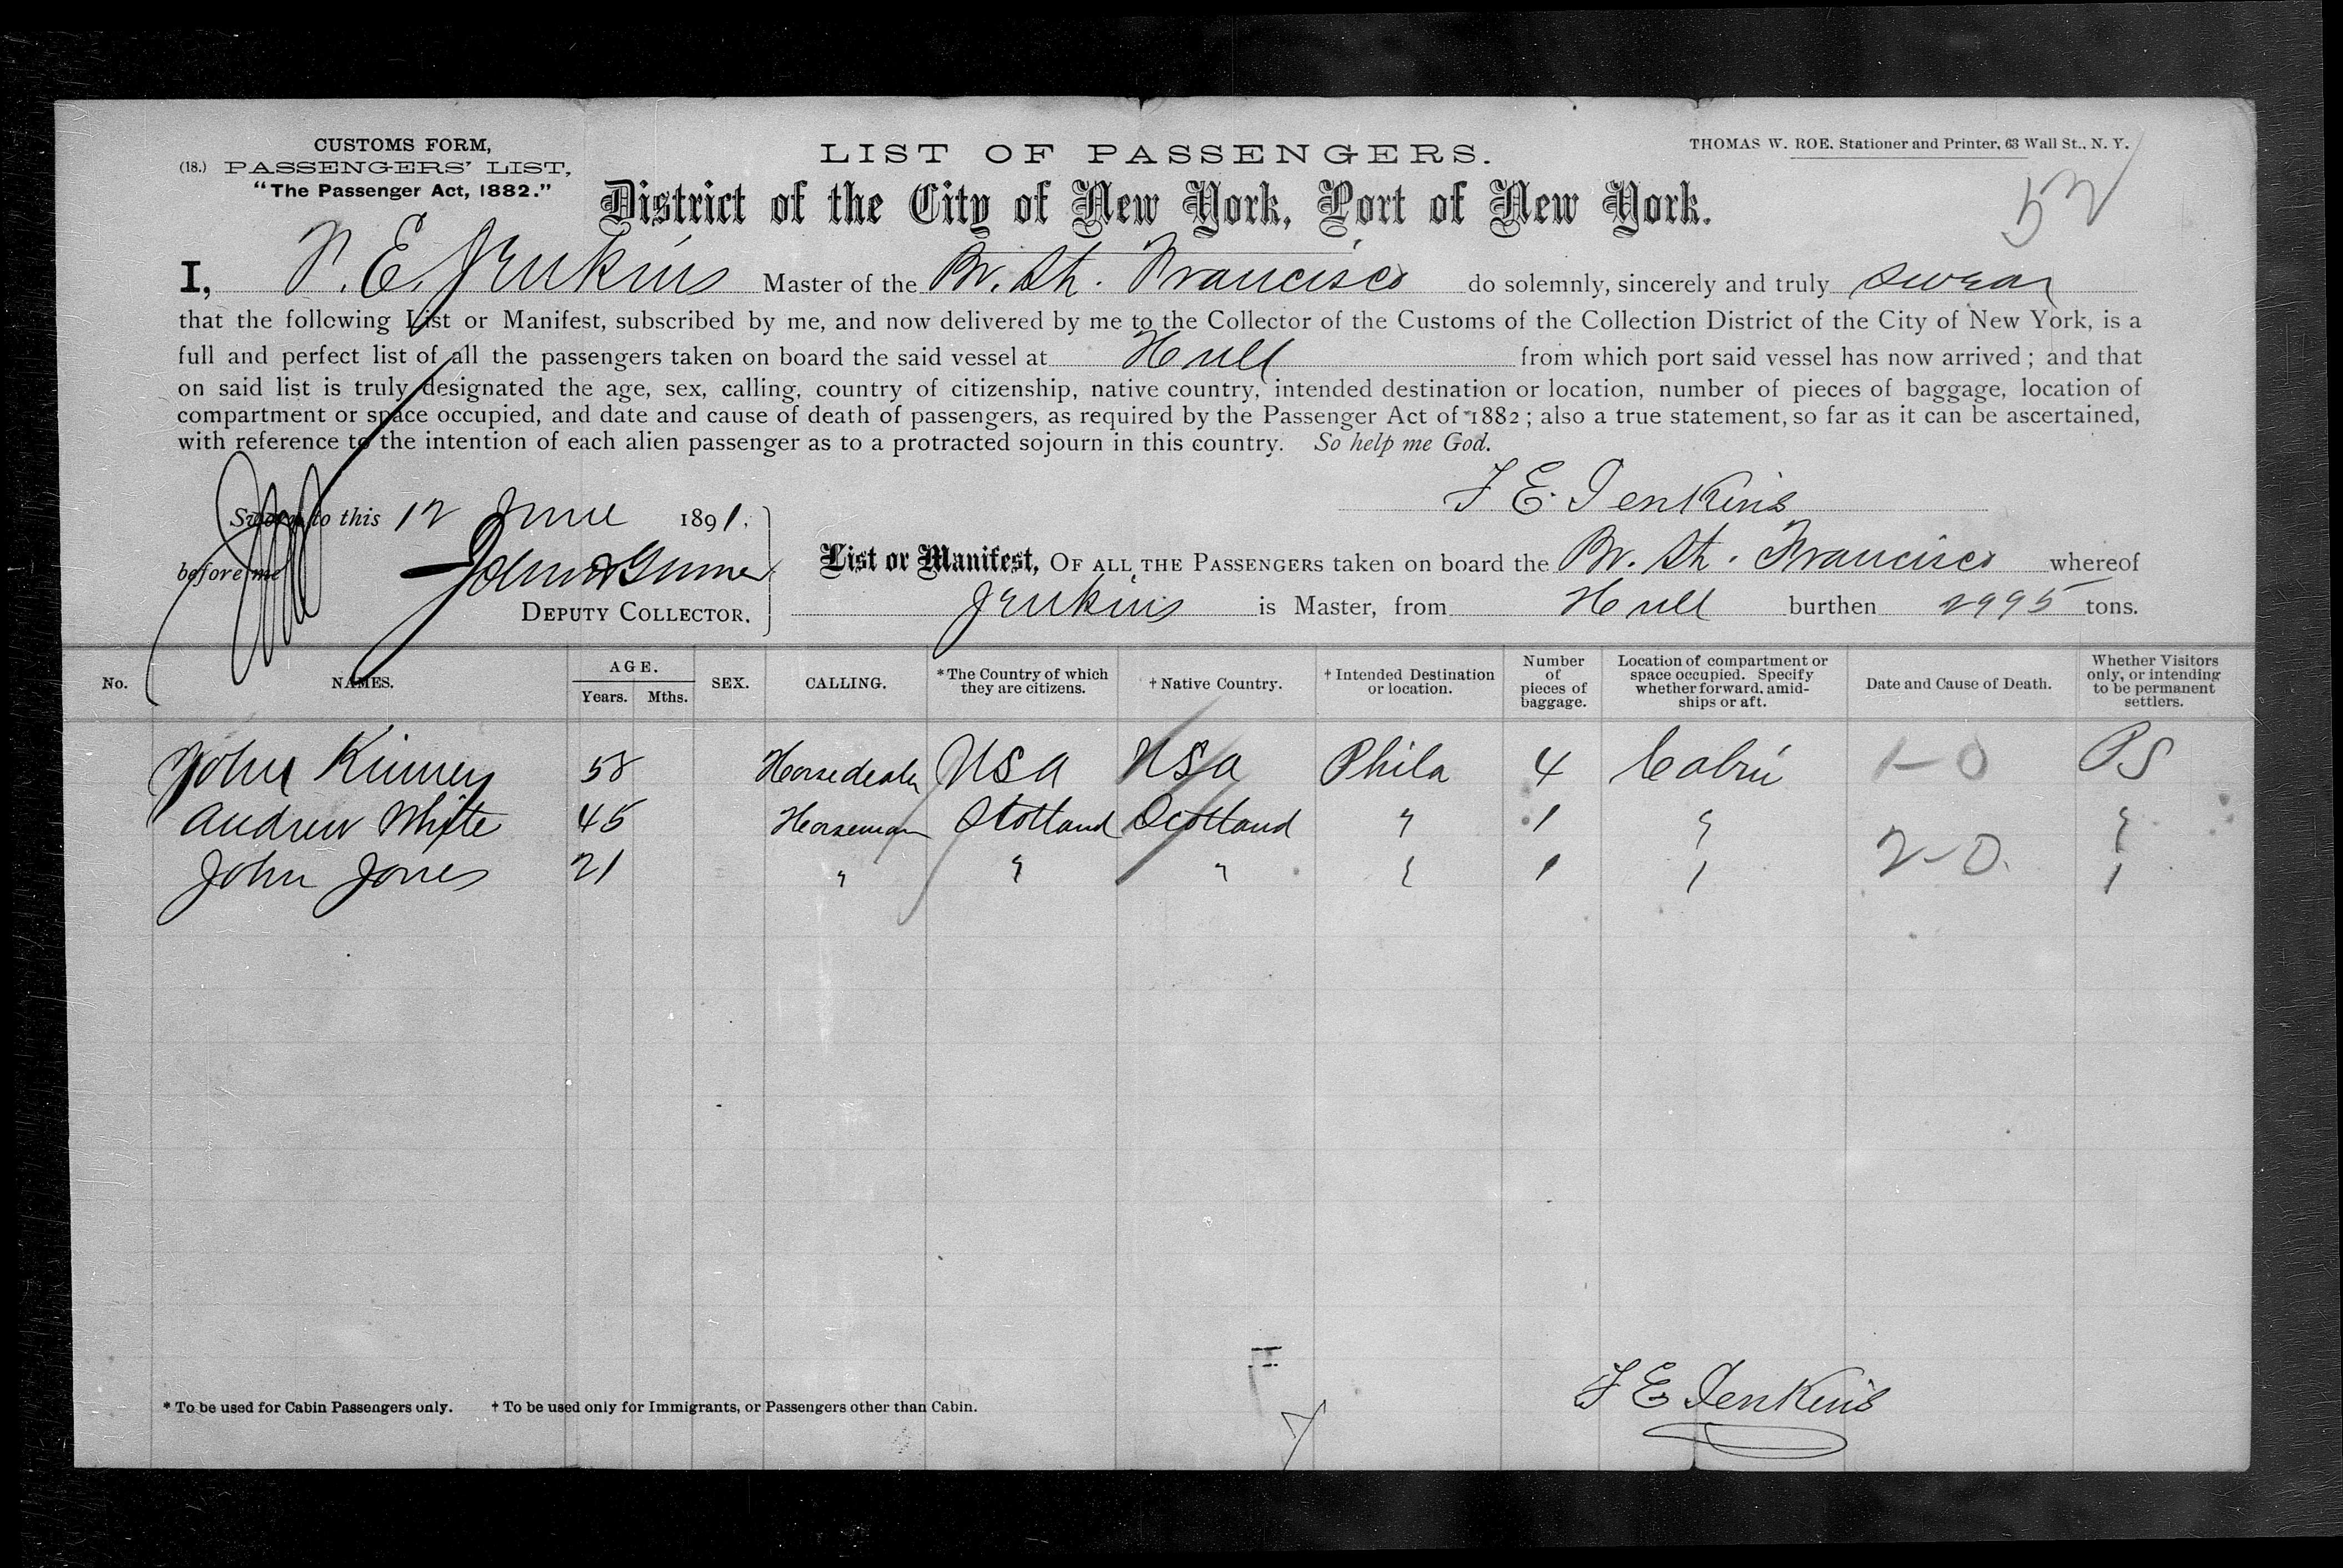 CUSTOMS FORM,
(18.) PASSENGERS' LIST,
"The Passenger Act, 1882."
LIST OF PASSENGERS.
THOMAS W. ROE, Stationer and Printer, 63 Wall St., N. Y.
District of the City of New York, Port of New York.
52
I, F. E. Jenkins Master of the Br. St. Francisco do solemnly, sincerely and truly swear
that the following List or Manifest, subscribed by me, and now delivered by me to the Collector of the Customs of the Collection District of the City of New York, is a
full and perfect list of all the passengers taken on board the said vessel at Hull from which port said vessel has now arrived; and that
on said list is truly designated the age, sex, calling, country of citizenship, native country, intended destination or location, number of pieces of baggage, location of
compartment or space occupied, and date and cause of death of passengers, as required by the Passenger Act of 1882; also a true statement, so far as it can be ascertained,
with reference to the intention of each alien passenger as to a protracted sojourn in this country. So help me God.
F E. Jenkins
Sworn to this 12 June 1891.
before me
DEPUTY COLLECTOR.
List or Manifest, OF ALL THE PASSENGERS taken on board the Br. St. Francisco whereof
Jenkins is Master, from Hull burthen 2995 tons.
No. NAMES. AGE. Years. Mths. SEX. CALLING. *The Country of which they are citizens. † Native Country. † Intended Destination or location. Number of pieces of baggage. Location of compartment or space occupied. Specify whether forward, amidships or aft. Date and Cause of Death. Whether Visitors only, or intending to be permanent settlers.
John Kinney 58 Horsedealer USA USA Phila 4 Cabin 1-0 PS
Andrew White 45 Horseman Scotland Scotland " 1 " "
John Jones 21 " " " " 1 " 2-0. "
* To be used for Cabin Passengers only. † To be used only for Immigrants, or Passengers other than Cabin.
F E Jenkins